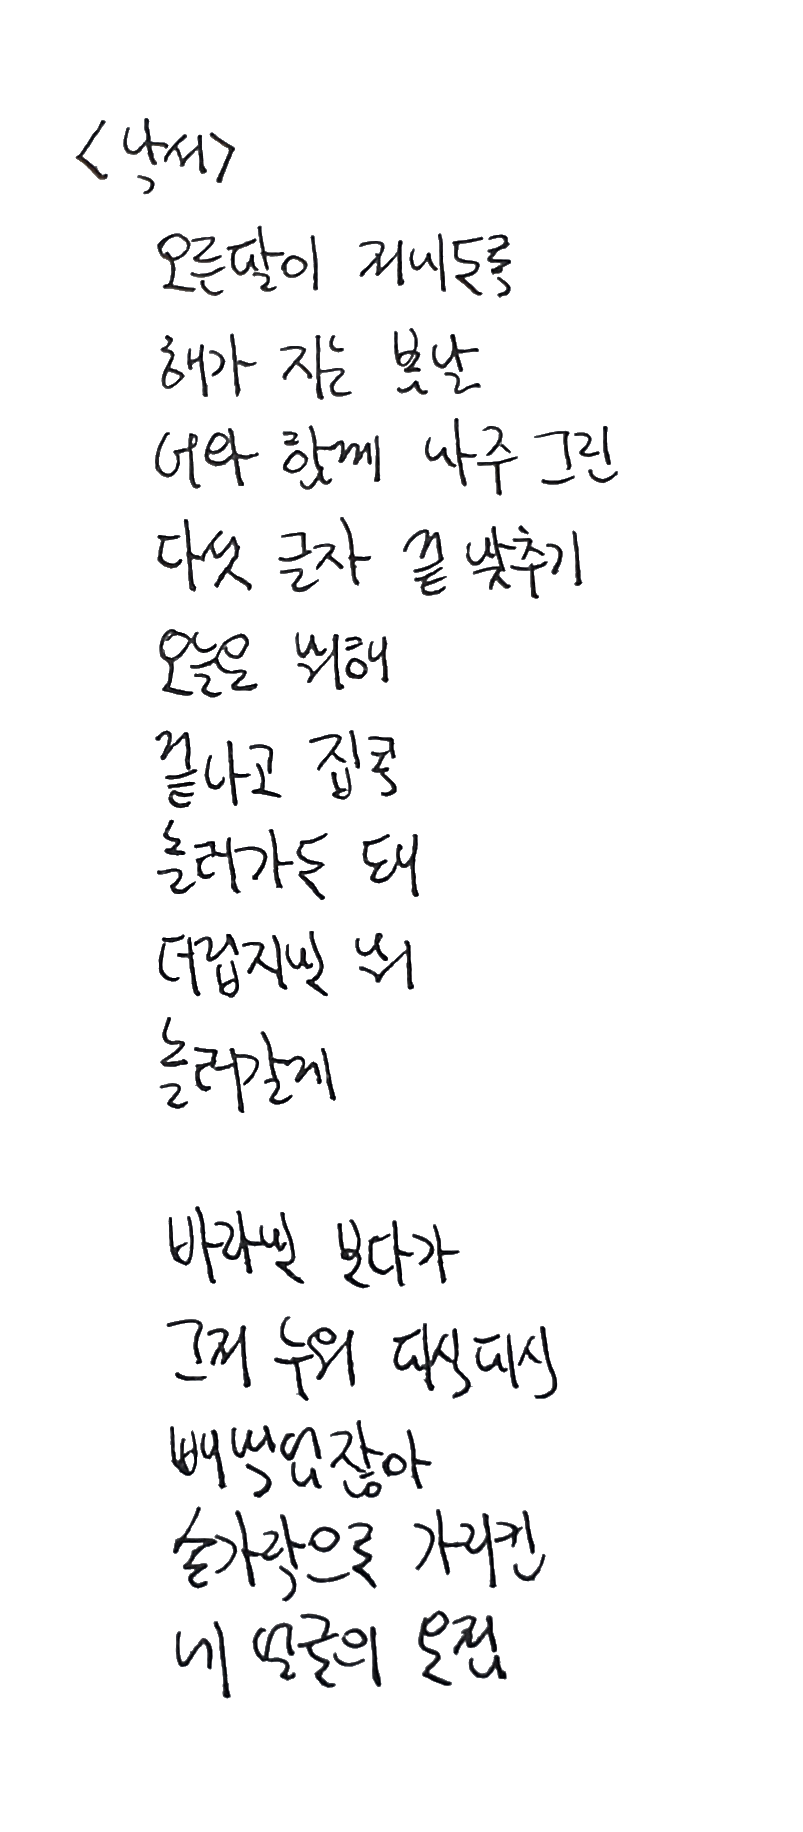 <낙서>
오른팔이 저리도록
해가 지는 봄날
너와 함께 마주 그린
다섯 글자 끝 맞추기
오늘은 뭐해
끝나고 집콕
놀러가도 돼
더럽지만 뭐
놀러갈게
바라만 보다가
그저 누워 피식피식
빼먹었잖아
손가락으로 가리킨
네 얼굴의 온점